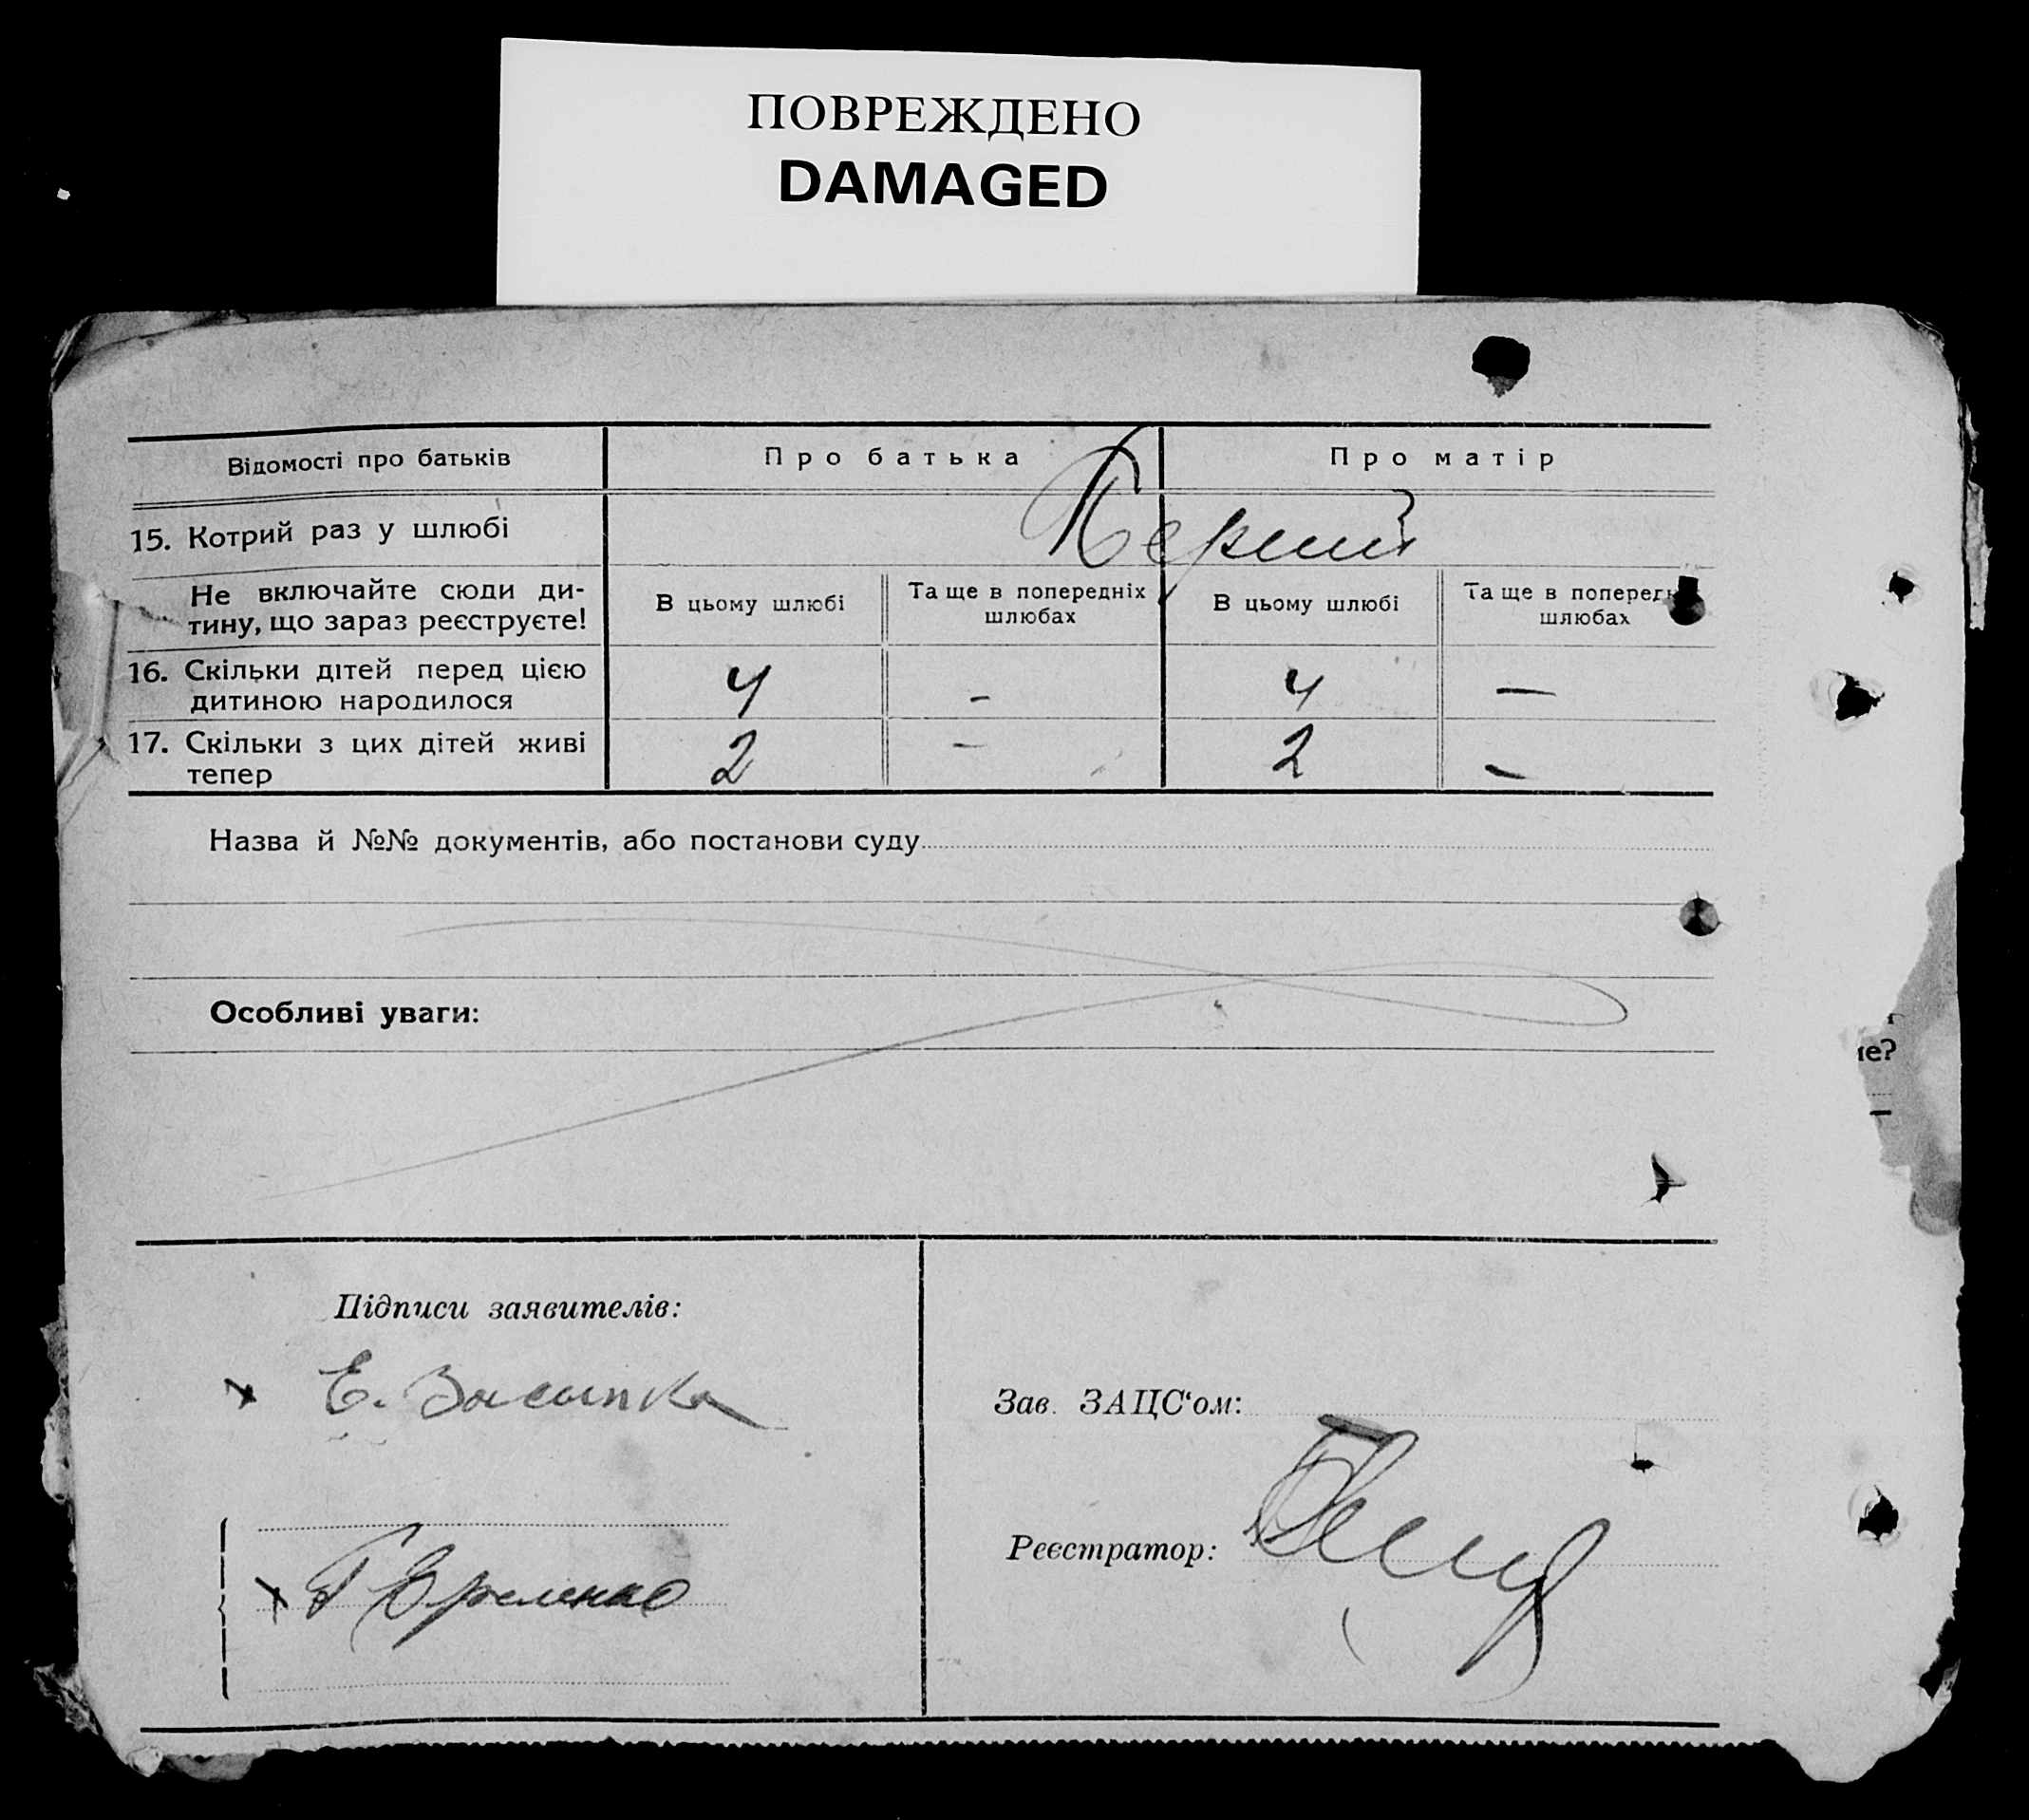 ПОВРЕЖДЕНО
DAMAGED
Відомості про батьків
Про батька
Про матір
15. Котрий раз у шлюбі
Перший
Не включайте сюди ди-
тину, що зараз реєструєте!
В цьому шлюбі
Та ще в попередніх
шлюбах
В цьому шлюбі
Та ще в поперед
шлюбах
16. Скільки дітей перед цією
дитиною народилося
4
-
4
—
17. Скільки з цих дітей живі
тепер
2
-
2
-
Назва й №№ документів, або постанови суду
Особливі уваги:
не?
Підписи заявителів:
Е. Засыпка
Зав. ЗАЦС‘ом:
Реєстратор: